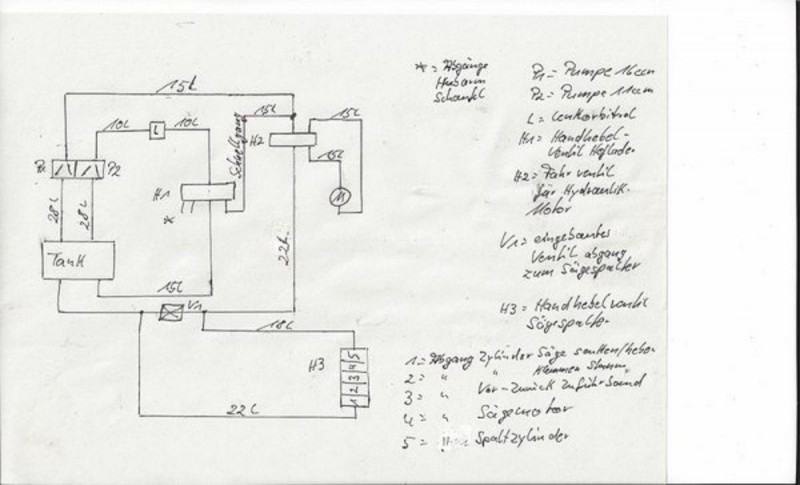 15L
10L
L
10L
15L
H2
15L
15L
Schnellgang
P1
P2
H1
*
M
28L
28L
22L
Tank
15L
V1
18L
H3
1 2 3 4 5
22L
* = Abgänge
Hubarm
Schaufel
P1 = Pumpe 16ccm
P2 = Pumpe 11ccm
L = Lenkorbitrol
H1 = Handhebel-
ventil Hoflader
H2 = Fahrventil
für Hydraulik-
Motor
V1 = eingebautes
Ventil abgang
zum Sägespalter
H3 = Handhebelventil
Sägespalter
1 = Abgang Zylinder Säge senken/heben
2 = " " Klemmen Stamm
3 = " Vor-Zurück Zuführband
4 = " Sägemotor
5 = Spaltzylinder